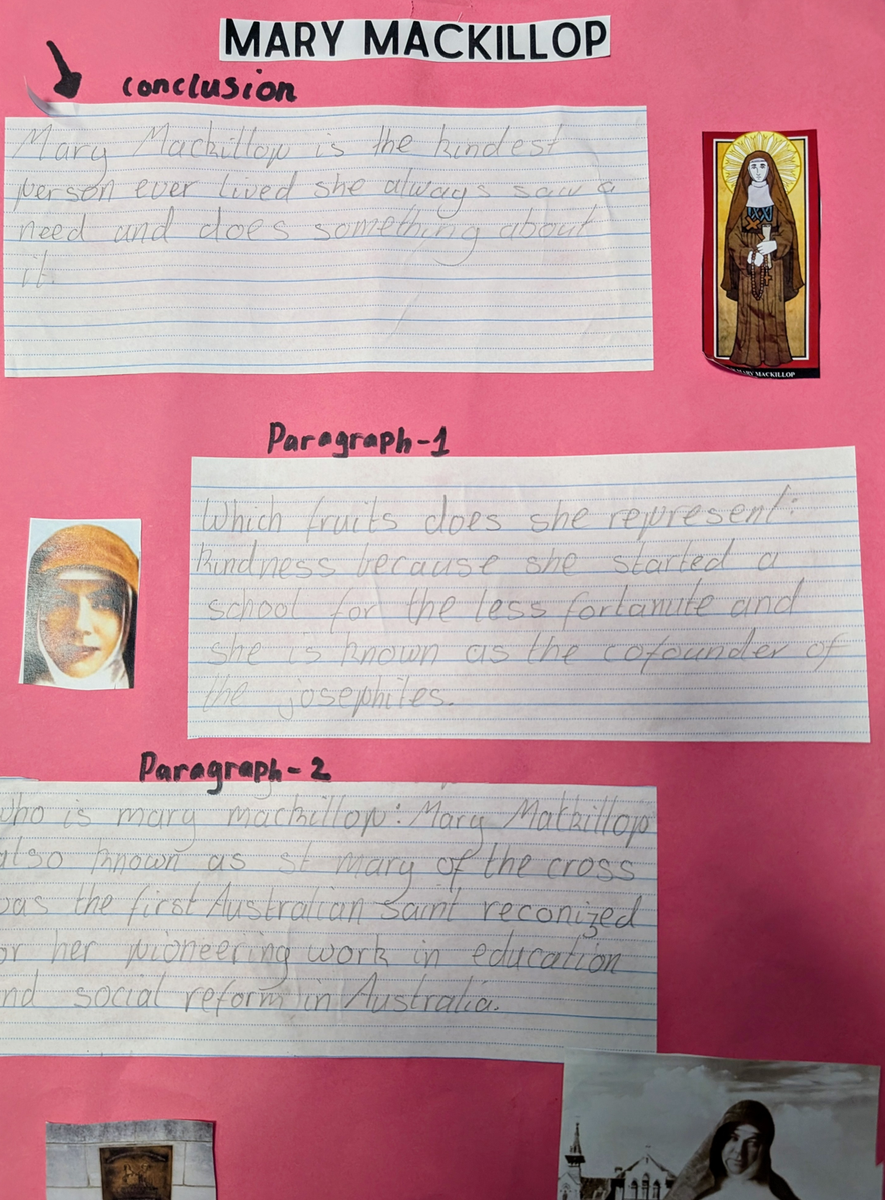 MARY MACKILLOP
conclusion
Mary Mackillop is the kindest
person ever lived she always saw a
need and does something about
it.
MARY MACKILLOP
Paragraph-1
Which fruits does she represent:
kindness because she started a
school for the less fortanute and
she is known as the cofounder of
the josephites.
Paragraph-2
who is mary mackillop: Mary Matkillop
also known as st mary of the cross
was the first Australian saint reconized
or her pioneering work in education
nd social reform in Australia.